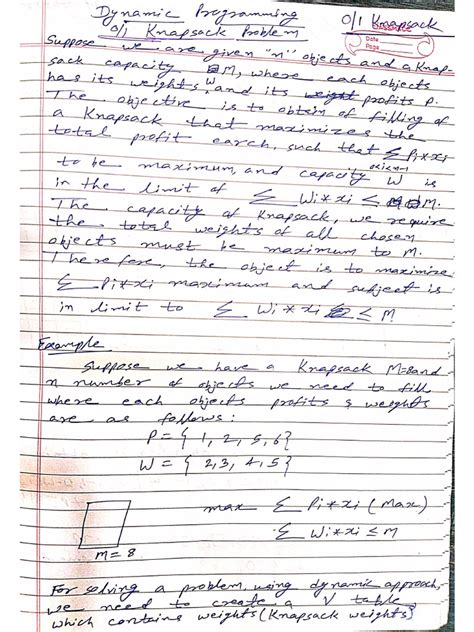 Dynamic Programming
0/1 Knapsack
0/1 Knapsack Problem
Date
Page
Suppose we are given "n" objects and a Knap-
sack capacity M, where each objects
has its weights W and its profits P.
The objective is to obtain of filling of
a Knapsack that maximizes the
total profit earch, such that Σ Pi*xi
to be maximum, and capacity W is
in the limit of Σ Wi*xi ≤ M.
The capacity of Knapsack, we require
the total weights of all chosen
objects must be maximum to M.
Therefore, the object is to maximize
Σ Pi*xi maximum and subject is
in limit to Σ Wi*xi ≤ M
Example
Suppose we have a Knapsack M=8 and
n number of objects we need to fill
where each objects profits & weights
are as follows:
P = { 1, 2, 5, 6}
W = { 2, 3, 4, 5}
max Σ Pi*xi (Max)
Σ Wi*xi ≤ M
M = 8
For solving a problem, using dynamic approach,
we need to create a V table,
which contains weights (Knapsack weights)